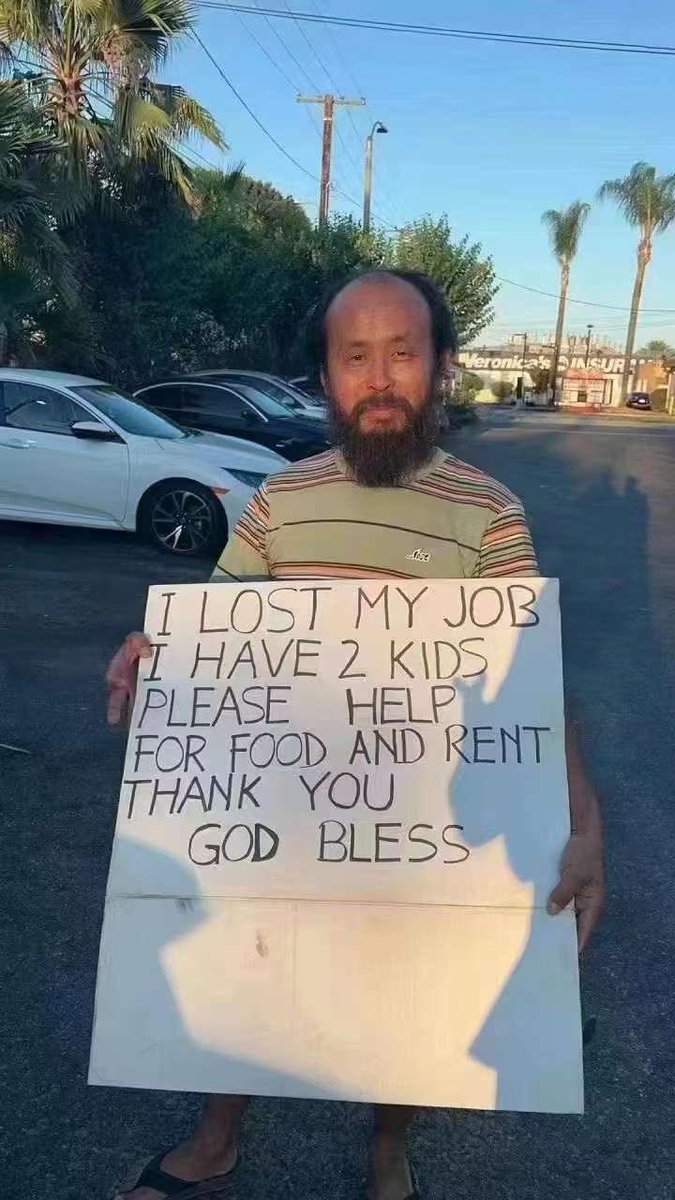 Veronica's INSUR
I LOST MY JOB
I HAVE 2 KIDS
PLEASE HELP
FOR FOOD AND RENT
THANK YOU
GOD BLESS